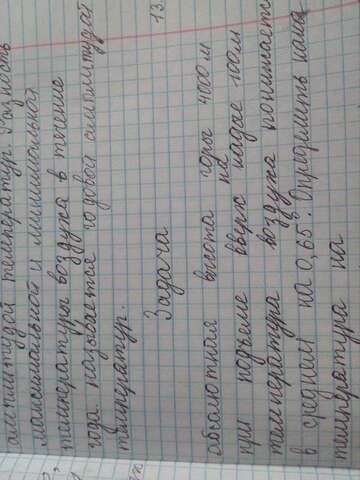 амплитудой температур. Разность
максимальной и минимальной
температуры воздуха в течение
года называется годовой амплитудой
температур.
13.
Задача
абсолютная высота горы 4000 м
при подъеме вверх на каждые 100м
температура воздуха понижается
в среднем на 0,65°. Определить
температура на